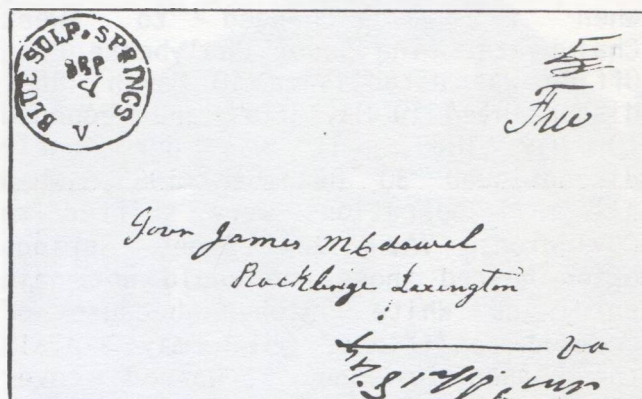 BLUE SULP, SPRINGS
V
5
Free
Govr James McDowel
Rockbrige Laxington
va